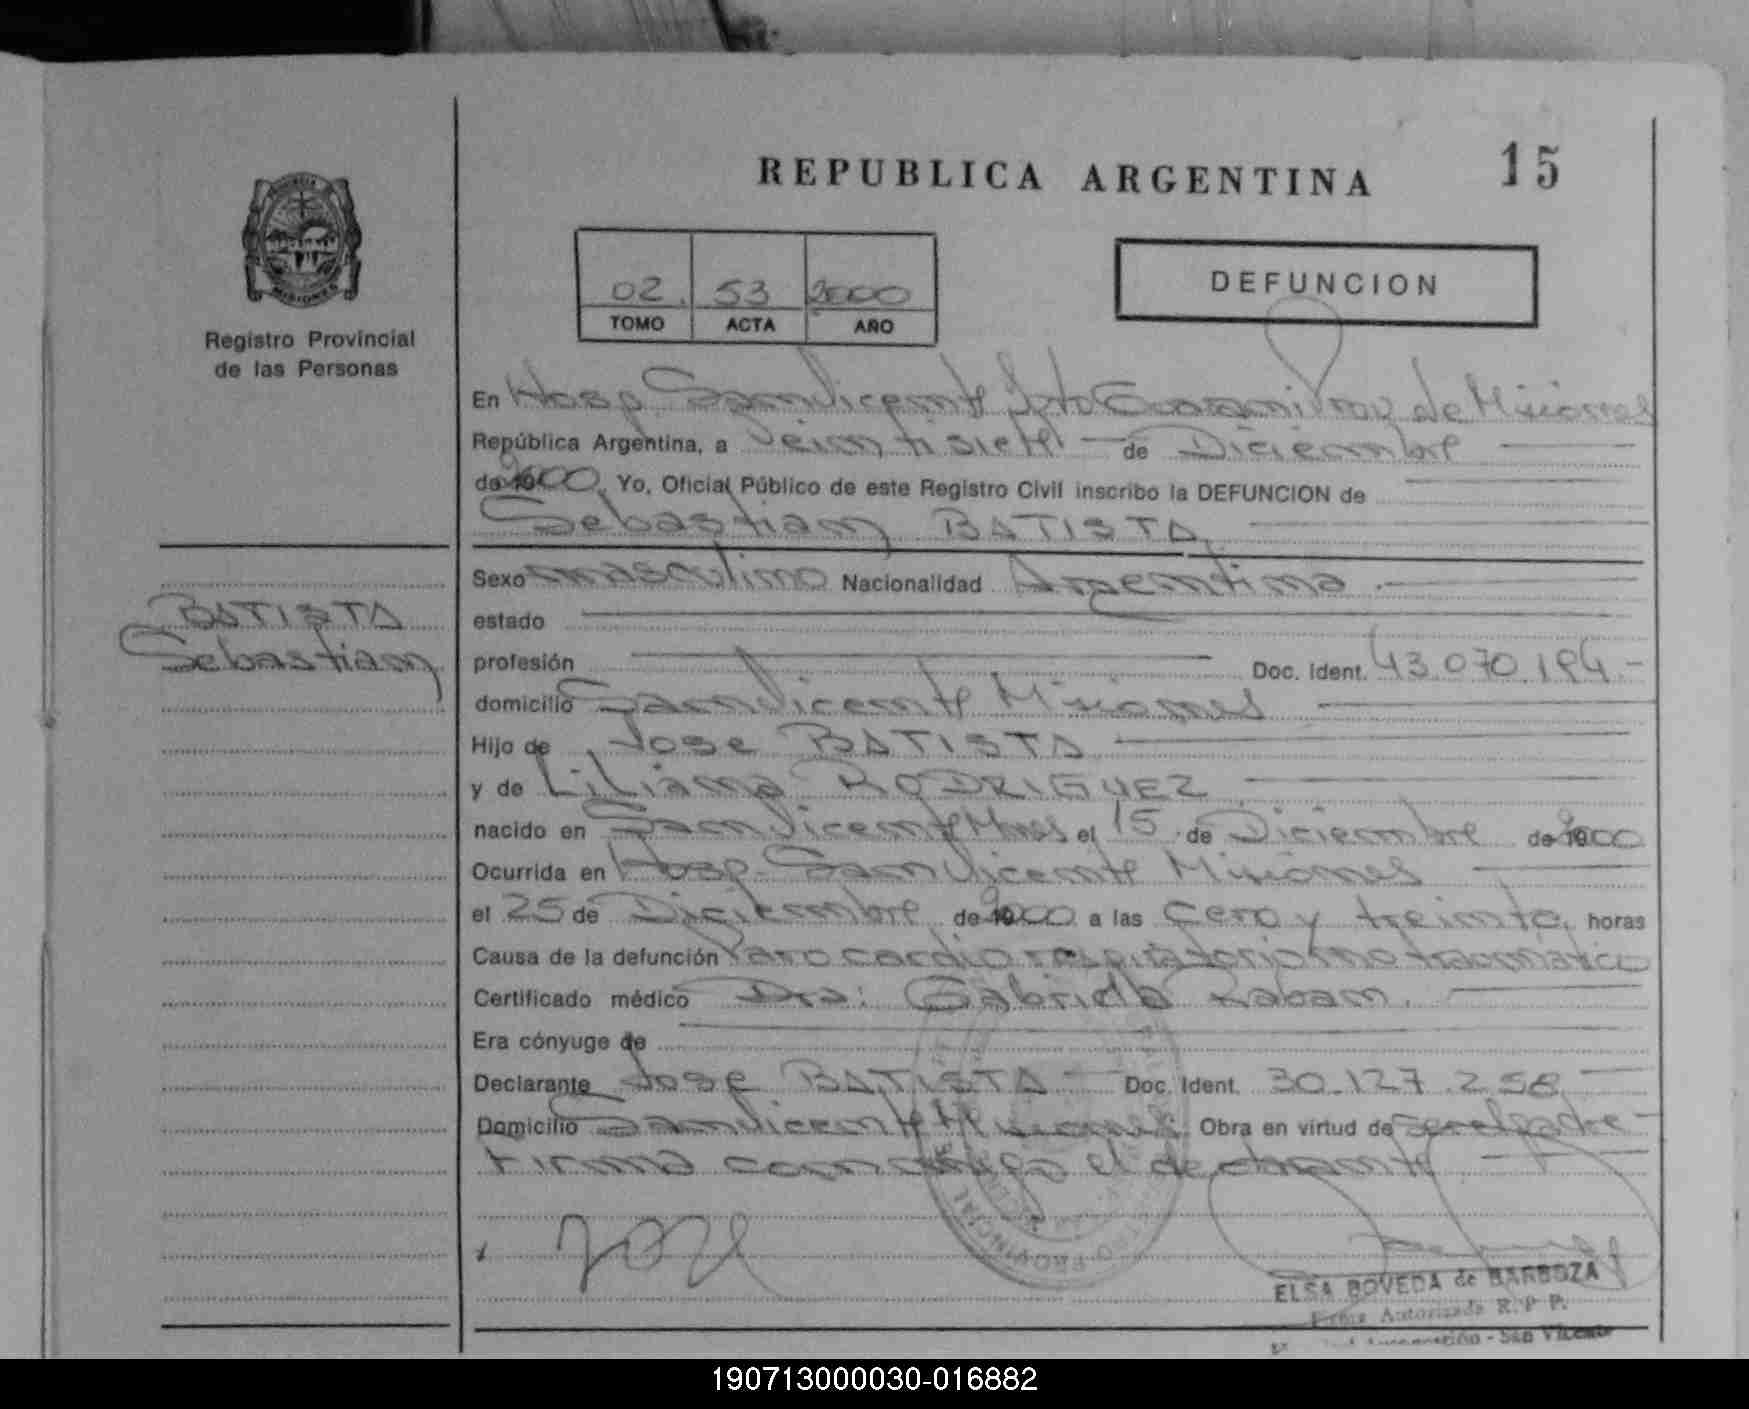 REPUBLICA ARGENTINA
15
PROVINCIA
MISIONES
Registro Provincial
de las Personas
02 53 2000
TOMO ACTA AÑO
DEFUNCION
En Hosp. San Vicente Dpto Guarani Prov de Misiones
República Argentina, a Veintisiete de Diciembre
de 2000. Yo, Oficial Público de este Registro Civil inscribo la DEFUNCION de
Sebastian BATISTA
BATISTA
Sebastian
Sexo masculino Nacionalidad Argentina
estado
profesión Doc. Ident. 43.070.194.-
domicilio San Vicente Misiones
Hijo de Jose BATISTA
y de Liliana RODRIGUEZ
nacido en San Vicente Mnes el 15 de Diciembre de 2000
Ocurrida en Hosp. San Vicente Misiones
el 25 de Diciembre de 2000 a las Cero y treinta horas
Causa de la defunción Paro cardio respiratorio no traumático
Certificado médico Dra: Gabriela
Era cónyuge de
Declarante Jose BATISTA Doc. Ident. 30.127.258
Domicilio San Vicente Misiones Obra en virtud de ser el padre
Firma conmigo el declarante
Jose
PROVINCIAL
ELSA BOVEDA de BARBOZA
Firma Autorizada R. P P.
San Vicente
190713000030-016882